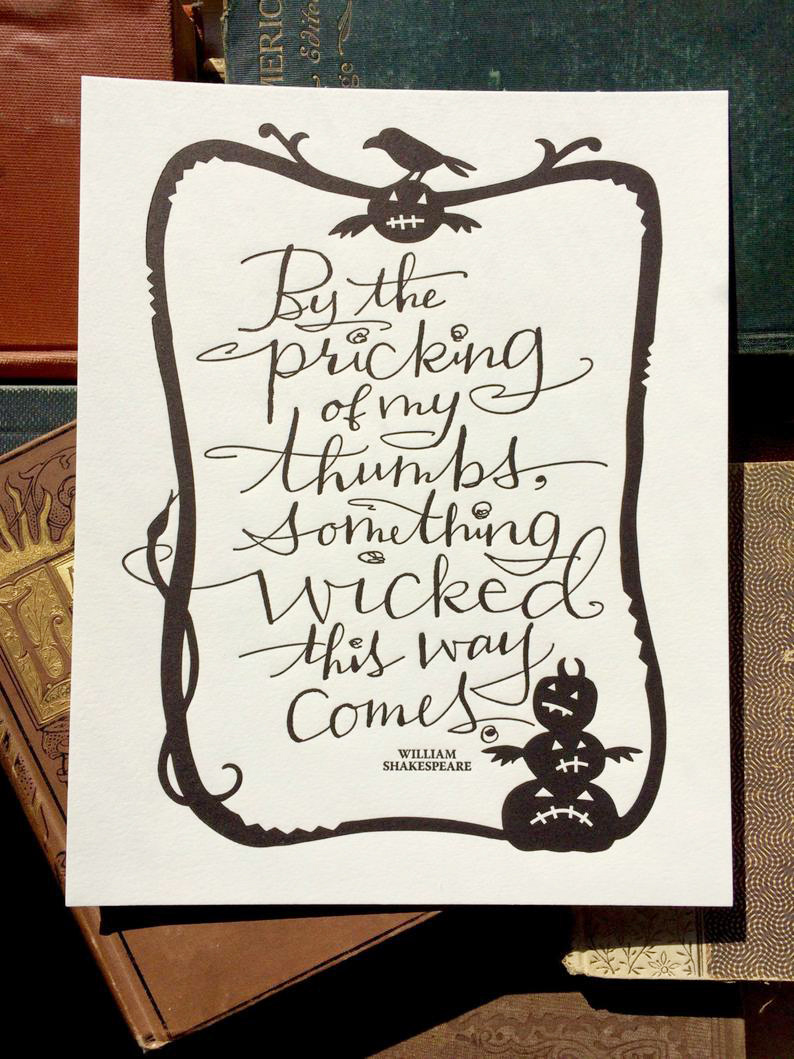 By the
pricking
of my
thumbs,
something
wicked
this way
comes.
WILLIAM
SHAKESPEARE